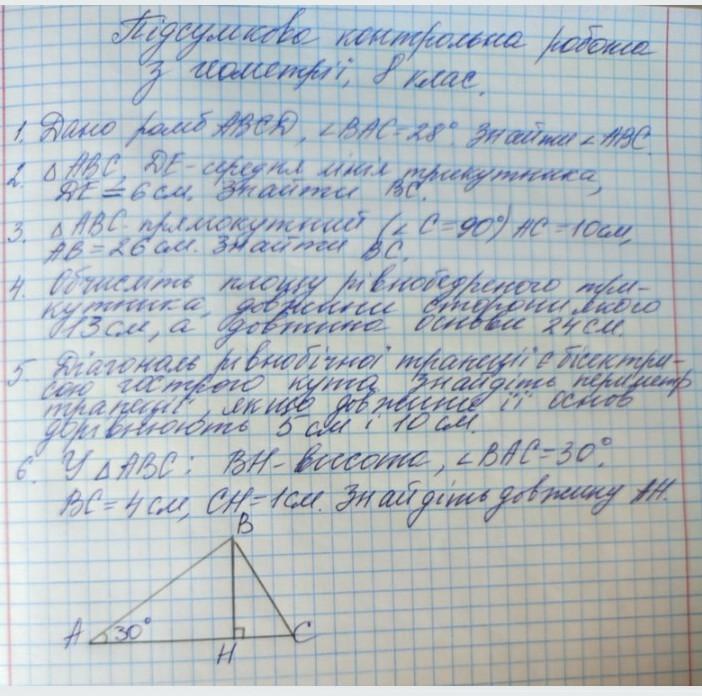 Підсумкова контрольна робота
з геометрії, 8 клас.
1. Дано ромб ABCD, ∠BAC=28°. Знайти ∠ABC.
2. △ABC, DE-середня лінія трикутника,
DE=6см. Знайти BC.
3. △ABC-прямокутний (∠C=90°) AC=10см,
AB=26см. Знайти BC.
4. Обчисліть площу рівнобедреного три-
кутника, довжини сторони якого
13см, а довжина основи 24см.
5. Діагональ рівнобічної трапеції є бісектри-
сою гострого кута. Знайдіть периметр
трапеції, якщо довжини її основ
дорівнюють 5см і 10см.
6. У △ABC: BH-висота, ∠BAC=30°.
BC=4см, CH=1см. Знайдіть довжину AH.
B
A 30° C
H